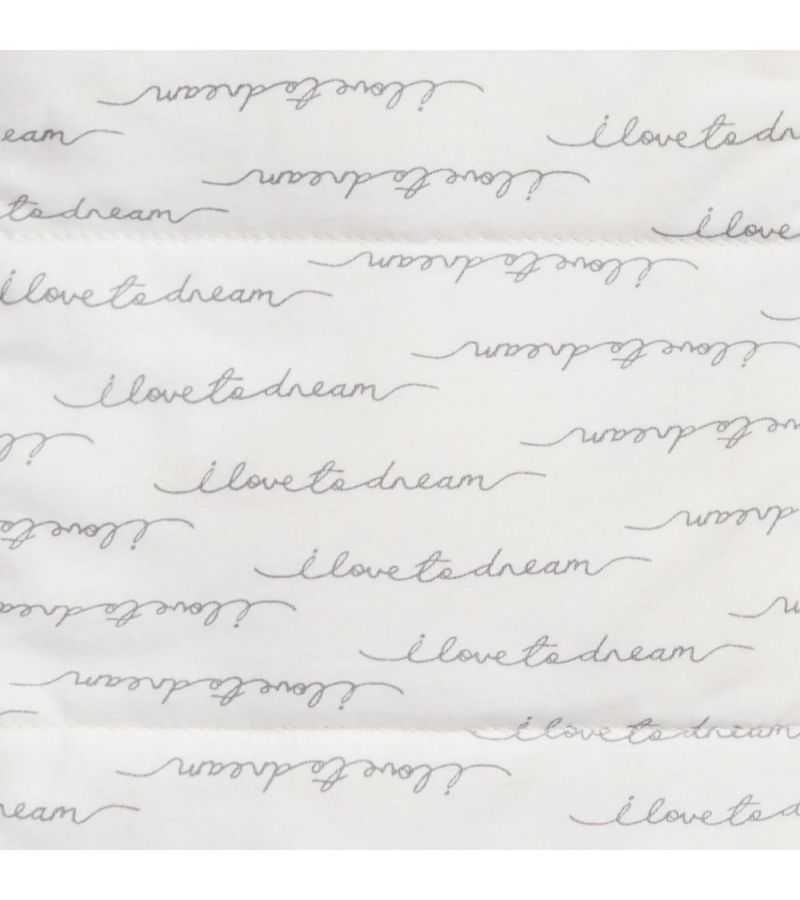 i love to dream
eam
i love to dr
i love to dream
to dream
i love
i love to dream
i love to dream
i love to dream
i love to dream
ve to dream
i l
i love to dream
i love to
dream
i love to dream
i love to drea
i love to dream
i love to dream
i love to dream
i love to dream
ream
i love to d